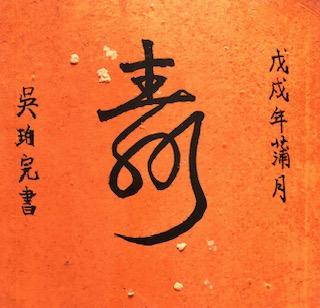 戊戌年蒲月
壽
吳珀完書